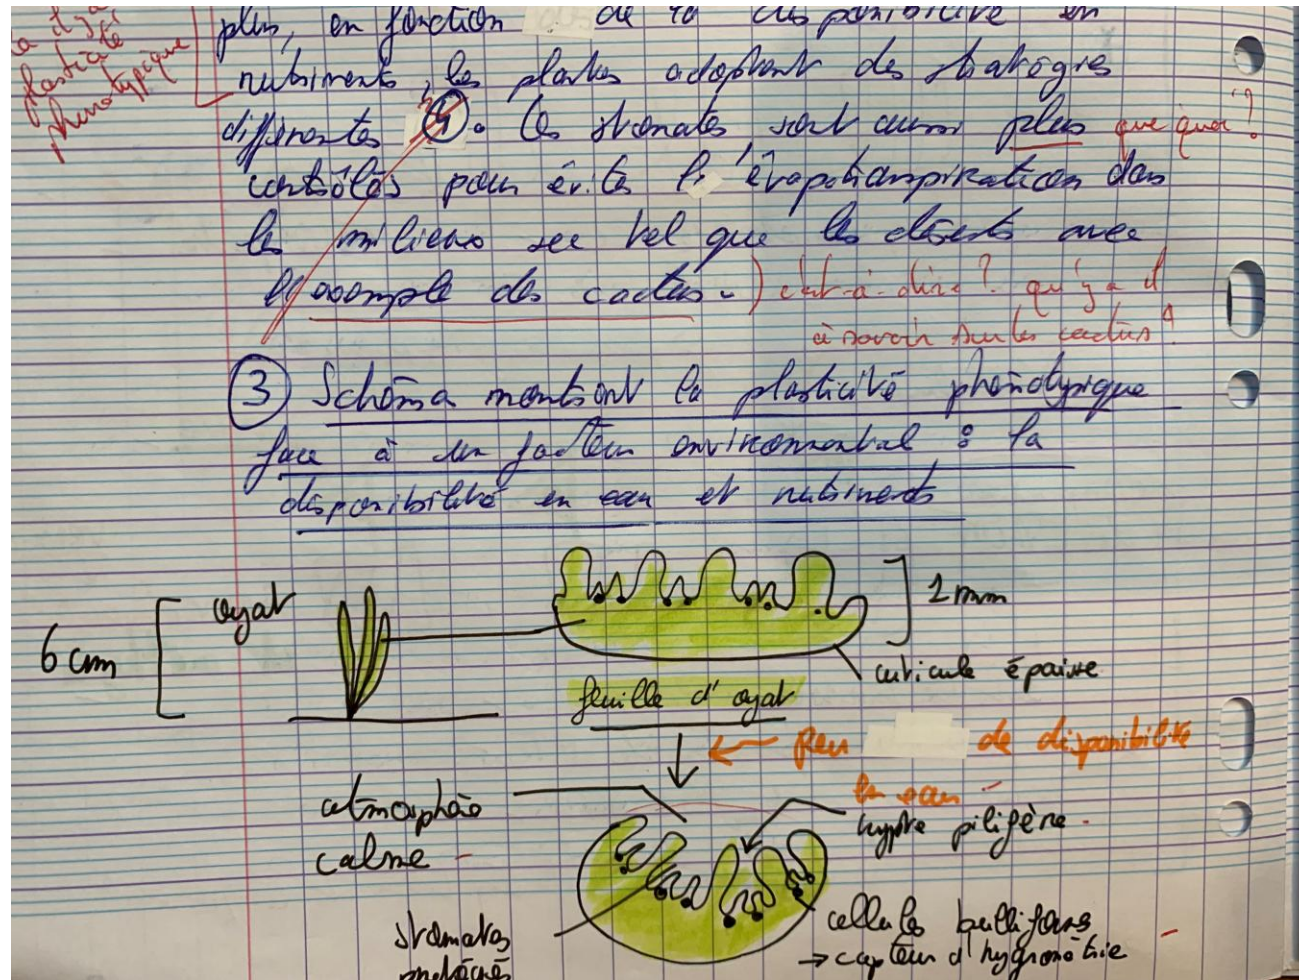 plus, en fonction de la disponibilité en
nutriments, les plantes adoptent des stratégies
différentes 4. Les stomates sont aussi plus que quoi ?
contrôlés pour éviter l'évapotranspiration dans
les milieux sec tel que les déserts avec
l'exemple des cactus. ) c'est-à-dire ? qu'y a il
à savoir sur les cactus ?
plasticité
phénotypique
3 Schéma montrant la plasticité phénotypique
face à un facteur environnemental : la
disponibilité en eau et nutriments
oyat
6 cm
1 mm
cuticule épaisse
feuille d'oyat
peu de disponibilité
en eau
atmosphère
calme
crypte pilifère
stomates
protégés
cellules bulliformes
→ capteur d'hygrométrie